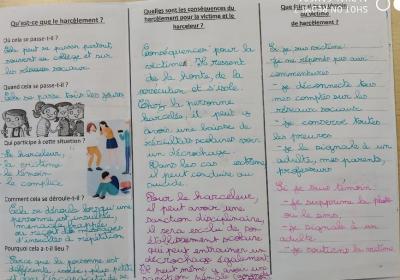 Qu'est-ce que le harcèlement ?
Où cela se passe-t-il ?
Cela peut se passer partout
souvent au collège et sur
les réseaux sociaux
Quand cela se passe-t-il ?
Cela se passe tous les jours
Qui participe à cette situation ?
- le harceleur,
- la victime
- le témoin
- le complice
Comment cela se déroule-t-il ?
Cela se déroule lorsqu'une
personne est
menacée, frappée
ou reçoit des messages
d'insultes à répétition
Pourquoi cela a-t-il lieu ?
Parce que la personne est
différente, isolée, plus petit
Quelles sont les conséquences du
harcèlement pour la victime et le
harceleur ?
Conséquences pour la
victime : Il ressent
de la honte, de la
persécution et s'isole.
Chez la personne
harcelée, il peut y
avoir une baisse de
résultats scolaires voir
un décrochage.
Dans les cas extrême
il peut conduire au
suicide.
Pour le harceleur,
il peut avoir une
sanction disciplinaire,
il sera exclu de son
établissement scolaire
qui peut entraîner un
décrochage également.
Il peut même y avoir une
Que
ou victime
de harcèlement ?
Si je suis victime :
- je ne réponds pas aux
commentaires
- je déconnecte tous
mes comptes sur les
réseaux sociaux
- je conserve toutes
les preuves
- je le signale à un
adulte, mes parents,
professeur
Si je suis témoin :
- je supprime la photo
ou le sms,
- je signale à un
adulte
- je soutiens la victime